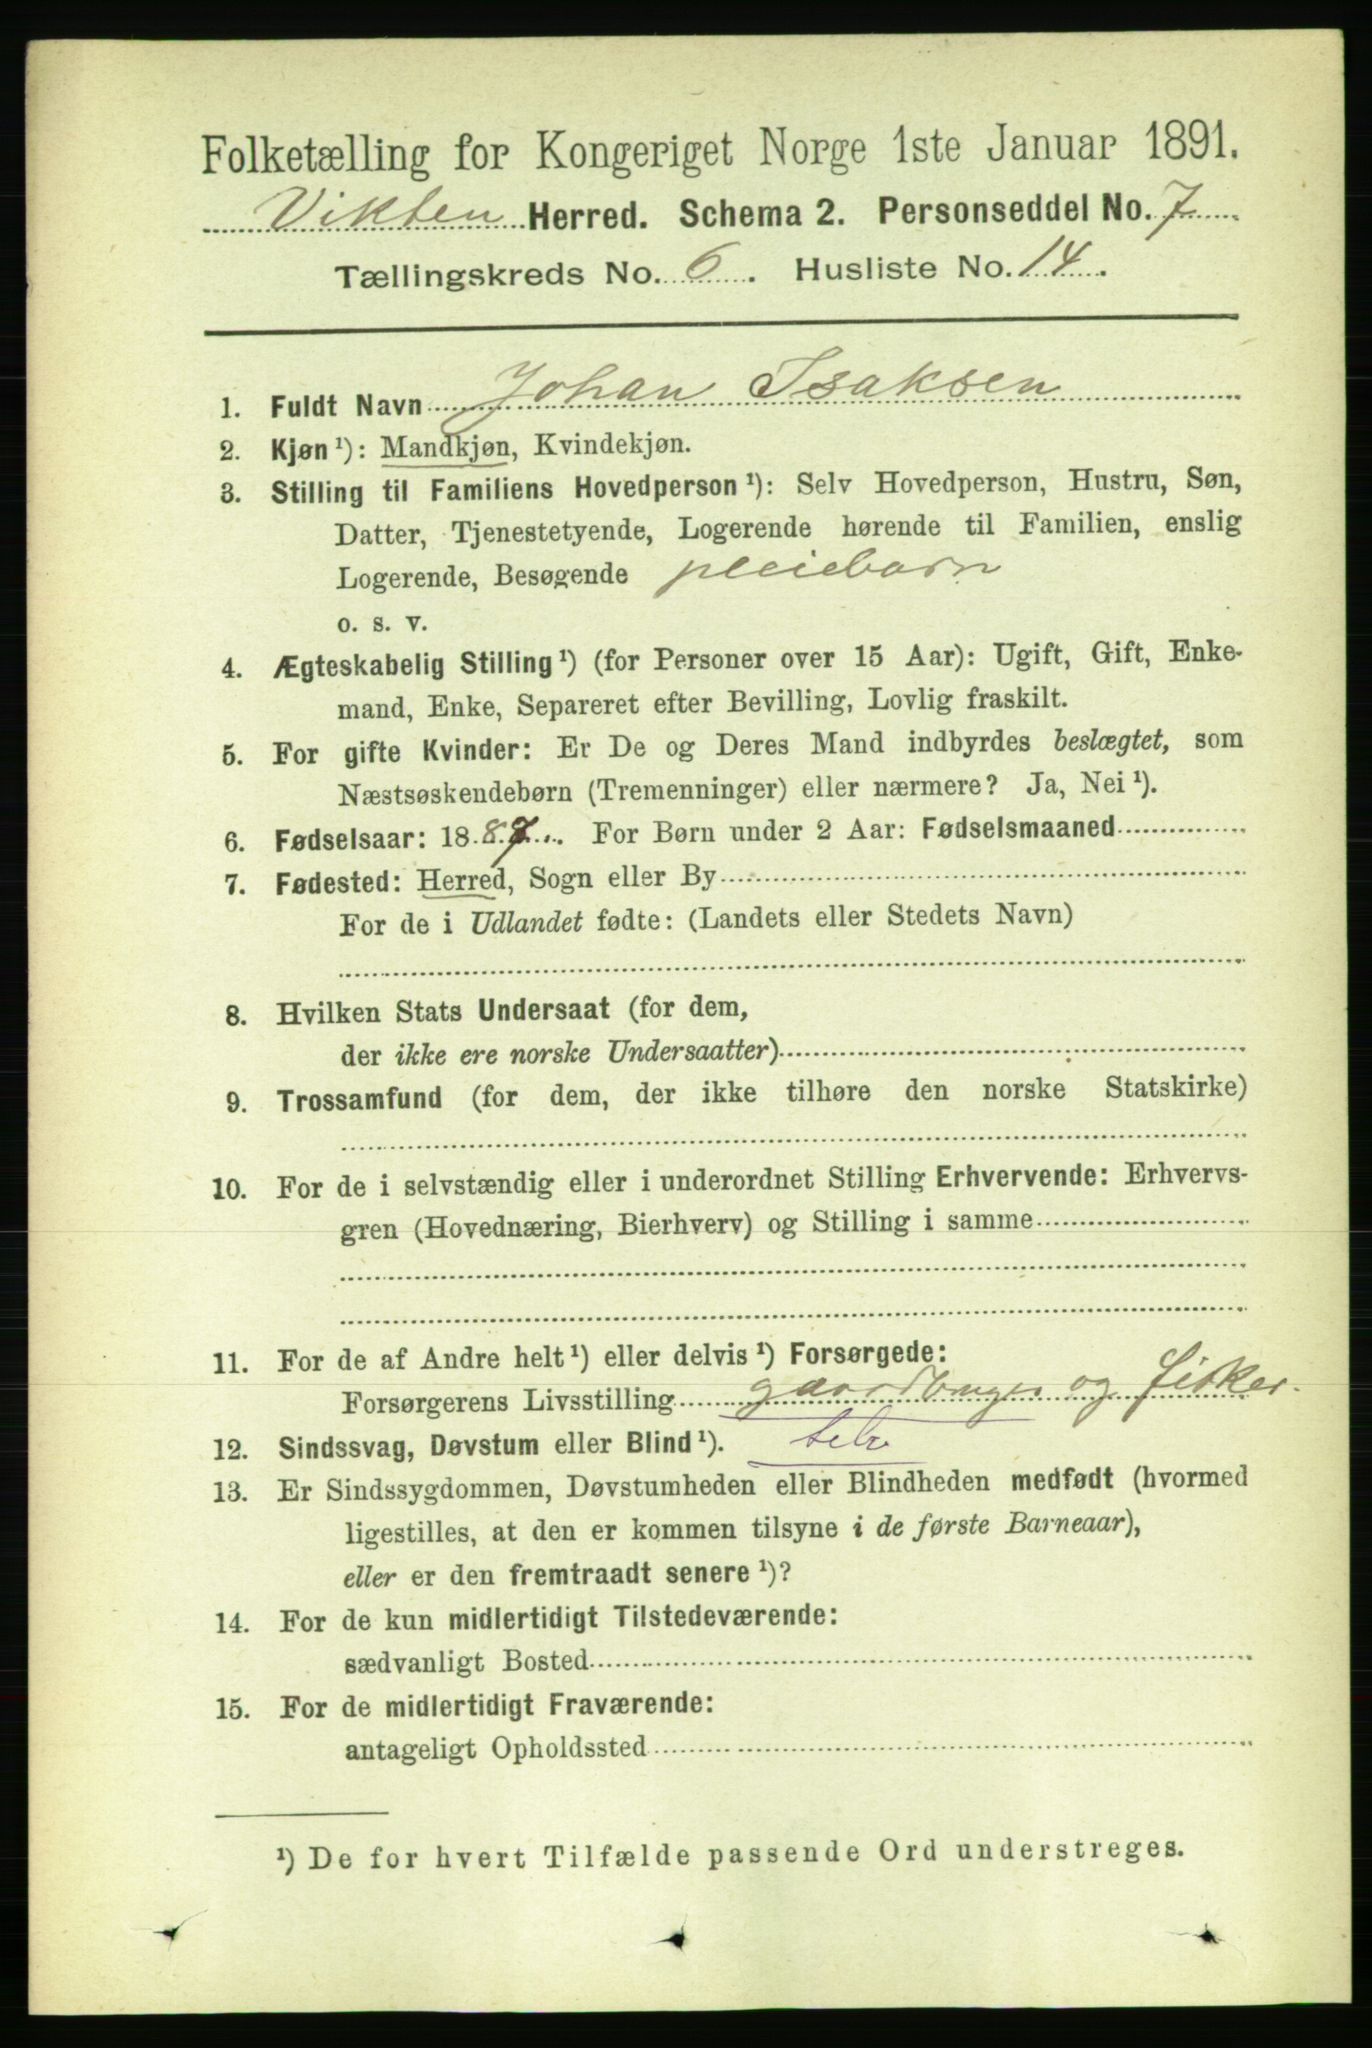 Folketælling for Kongeriget Norge 1ste Januar 1891.
Vikten Herred. Schema 2. Personseddel No. 7
Tællingskreds No. 6. Husliste No. 14.
1. Fuldt Navn Johan Isaksen
2. Kjøn ¹): Mandkjøn, Kvindekjøn.
3. Stilling til Familiens Hovedperson ¹): Selv Hovedperson, Hustru, Søn,
Datter, Tjenestetyende, Logerende hørende til Familien, enslig
Logerende, Besøgende pleiebarn
o. s. v.
4. Ægteskabelig Stilling ¹) (for Personer over 15 Aar): Ugift, Gift, Enke-
mand, Enke, Separeret efter Bevilling, Lovlig fraskilt.
5. For gifte Kvinder: Er De og Deres Mand indbyrdes beslægtet, som
Næstsøskendebørn (Tremenninger) eller nærmere? Ja, Nei ¹).
6. Fødselsaar: 1887. For Børn under 2 Aar: Fødselsmaaned
7. Fødested: Herred, Sogn eller By
For de i Udlandet fødte: (Landets eller Stedets Navn)
8. Hvilken Stats Undersaat (for dem,
der ikke ere norske Undersaatter)
9. Trossamfund (for dem, der ikke tilhøre den norske Statskirke)
10. For de i selvstændig eller i underordnet Stilling Erhvervende: Erhvervs-
gren (Hovednæring, Bierhverv) og Stilling i samme
11. For de af Andre helt ¹) eller delvis ¹) Forsørgede:
Forsørgerens Livsstilling gaardbruger og fisker.
12. Sindssvag, Døvstum eller Blind ¹). selv
13. Er Sindssygdommen, Døvstumheden eller Blindheden medfødt (hvormed
ligestilles, at den er kommen tilsyne i de første Barneaar),
eller er den fremtraadt senere ¹)?
14. For de kun midlertidigt Tilstedeværende:
sædvanligt Bosted
15. For de midlertidigt Fraværende:
antageligt Opholdssted
¹) De for hvert Tilfælde passende Ord understreges.